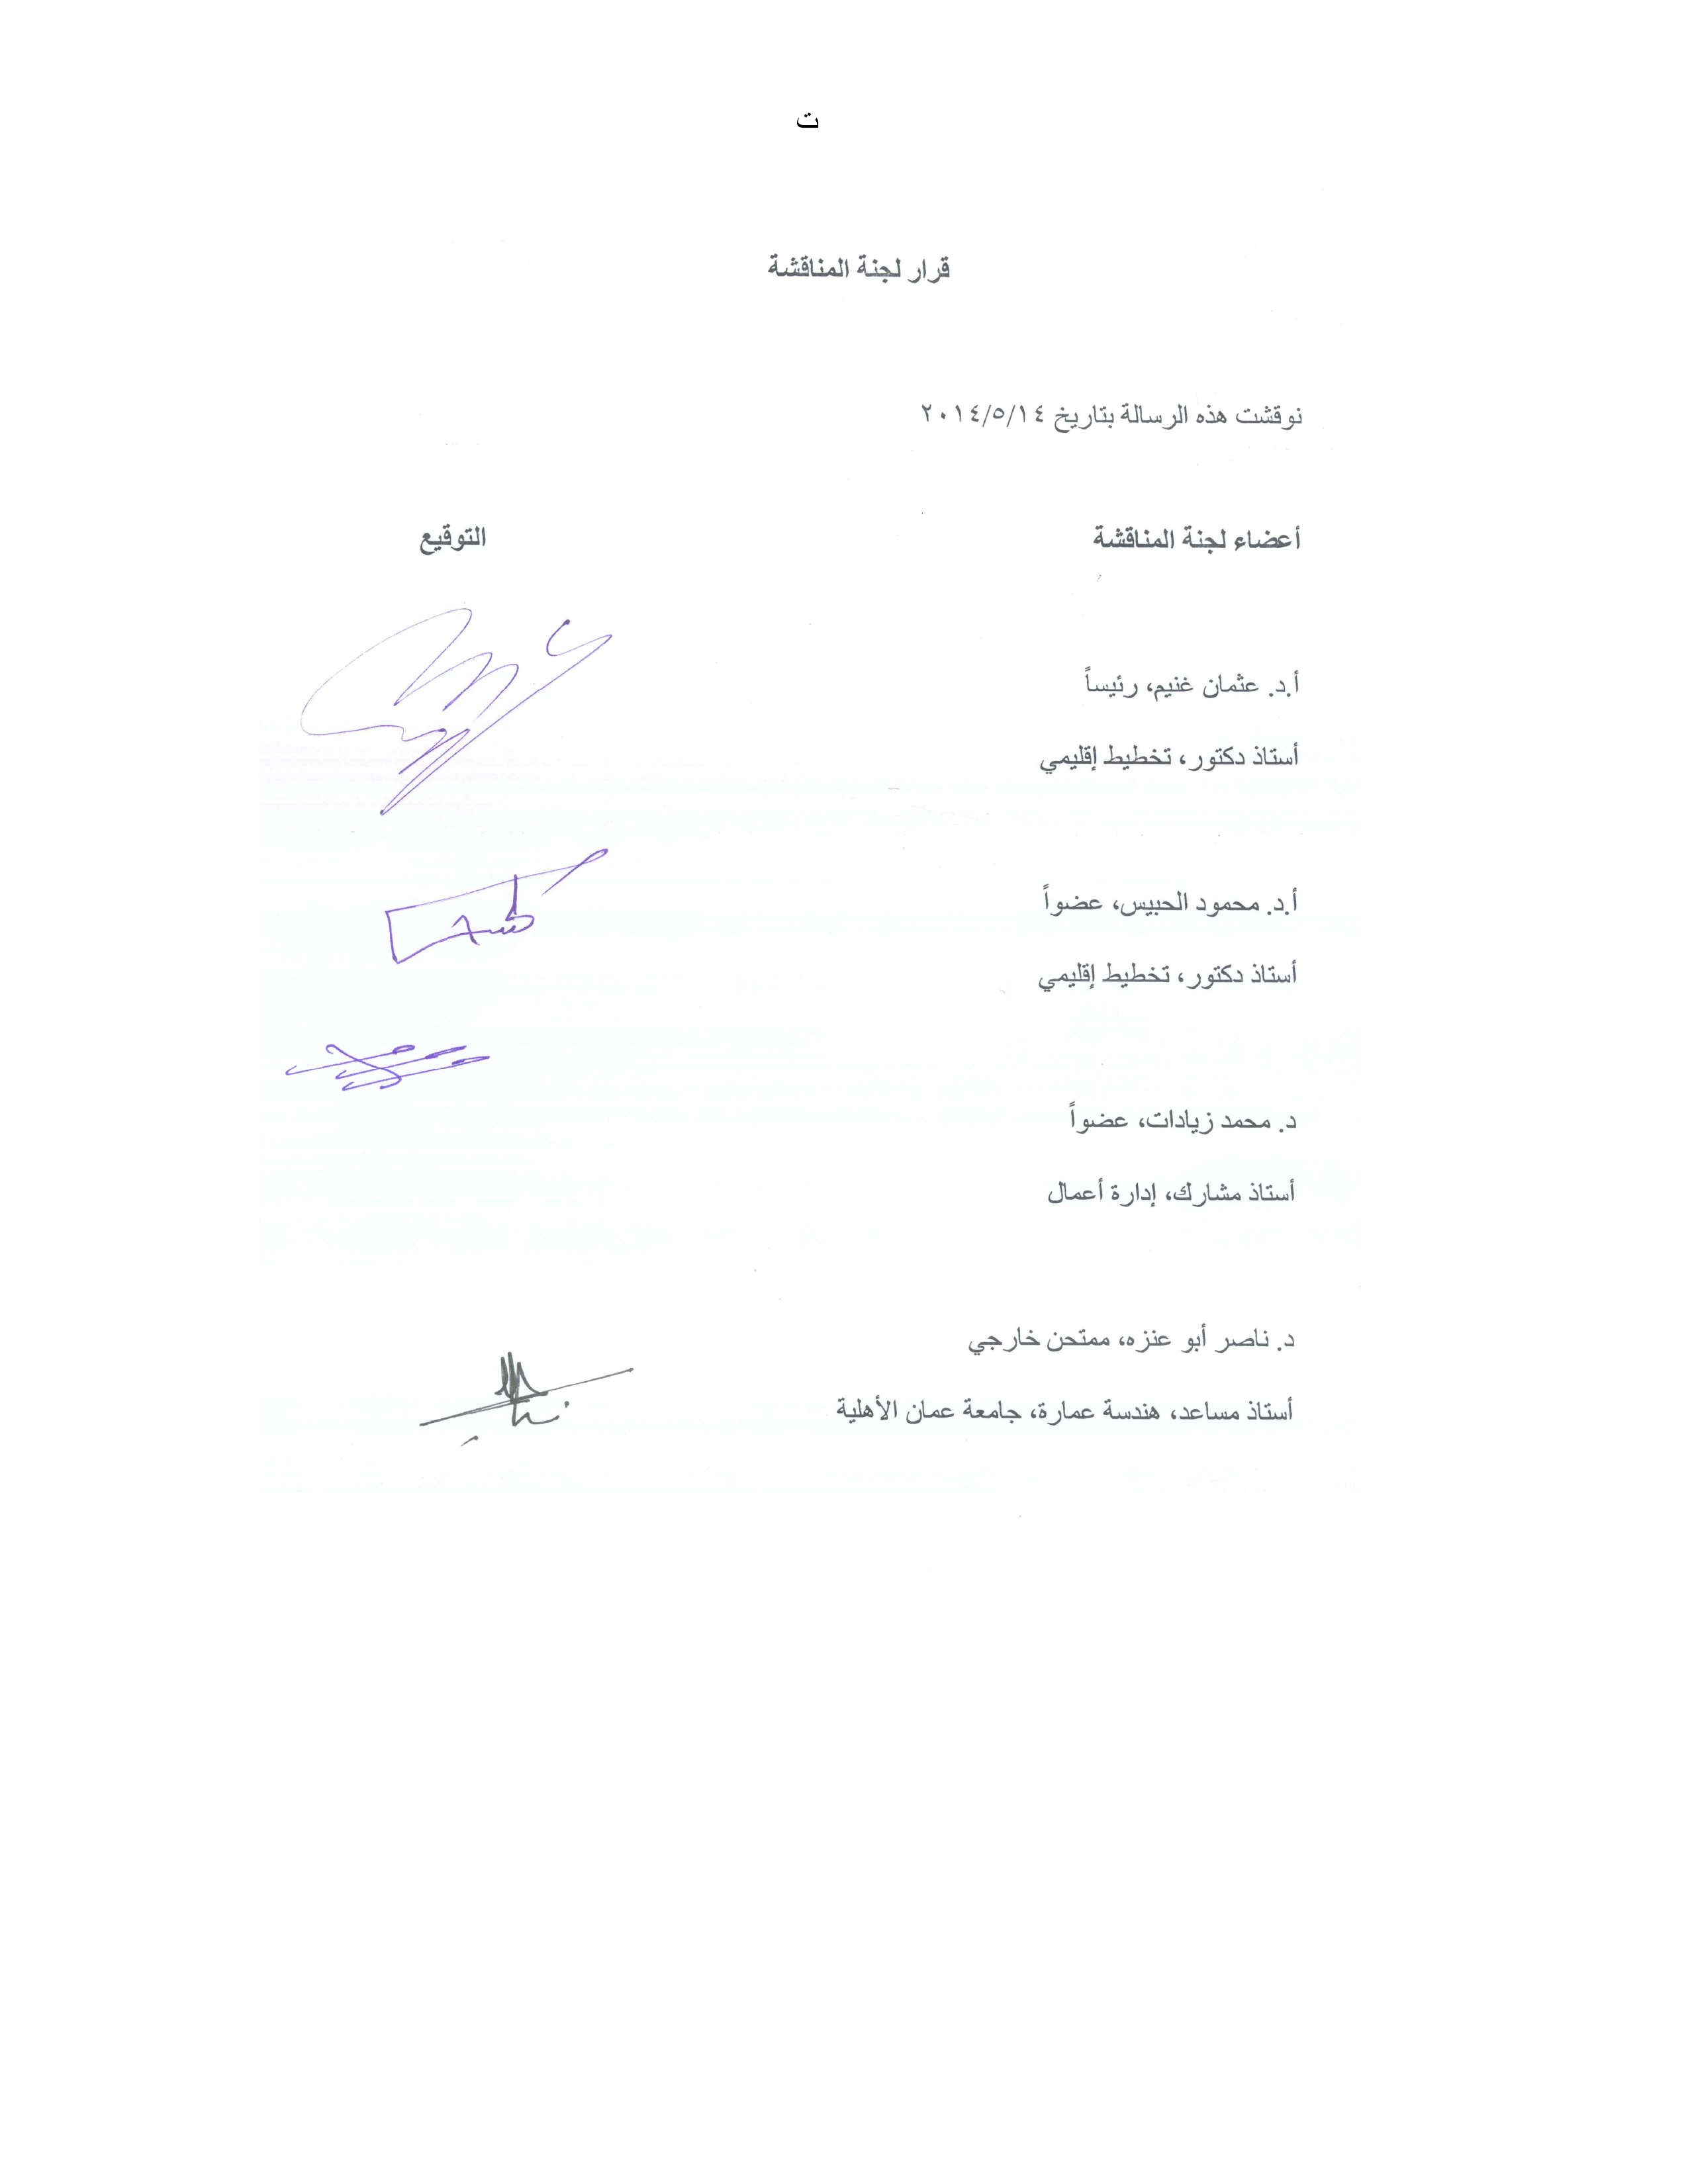 ت
قرار لجنة المناقشة
نوقشت هذه الرسالة بتاريخ ٢٠١٤/٥/١٤
أعضاء لجنة المناقشة التوقيع
أ.د. عثمان غنيم، رئيساً
أستاذ دكتور، تخطيط إقليمي
أ.د. محمود الحبيس، عضواً
أستاذ دكتور، تخطيط إقليمي
د. محمد زيادات، عضواً
أستاذ مشارك، إدارة أعمال
د. ناصر أبو عنزه، ممتحن خارجي
أستاذ مساعد، هندسة عمارة، جامعة عمان الأهلية